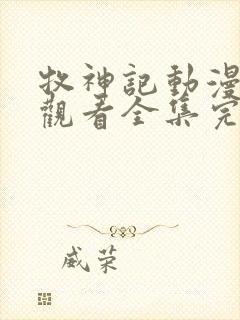 牧神記動漫
觀看全集完
威荣